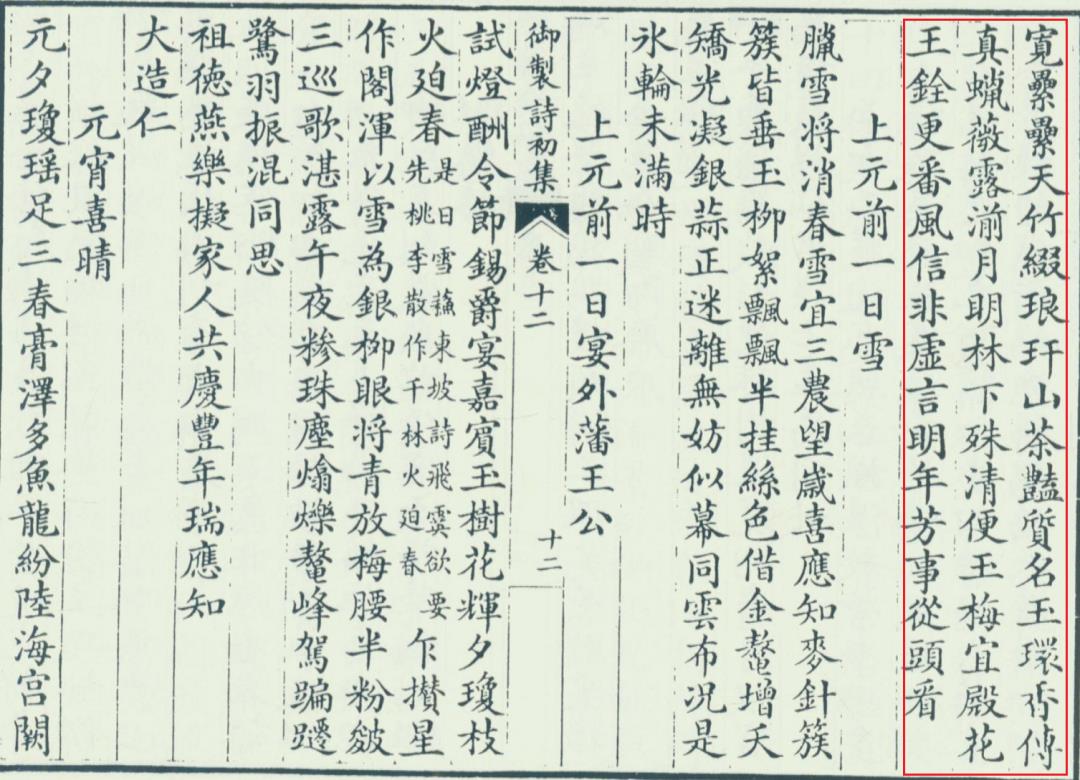 寛纍纍天竹綴琅玕山茶豔質名玉環秀傳
真蠟薇露湔月明林下殊清便玉梅宜殿花
王銓更番風信非虛言明年芳事從頭看
上元前一日雪
臘雪将消春雪宜三農望歲喜應知麥針簇
簇皆垂玉柳絮飄飄半挂絲色借金鼇增夭
矯光凝銀蒜正迷離無妨似幕同雲布况是
氷輪未滿時
上元前一日宴外藩王公
御製詩初集 卷十二 十二
試燈酬令節錫爵宴嘉賓玉樹花輝夕瓊枝
火廹春是日雪蘇東坡詩飛霙欲要先桃李散作千林火迫春乍攅星
作閣渾以雪為銀栁眼将青放梅腰半粉皴
三巡歌湛露午夜糝珠塵爚爍鼇峰駕蹁躚
鷺羽振混同思
祖德燕樂擬家人共慶豐年瑞應知
大造仁
元宵喜晴
元夕瓊瑶足三春膏澤多魚龍紛陸海宫闕